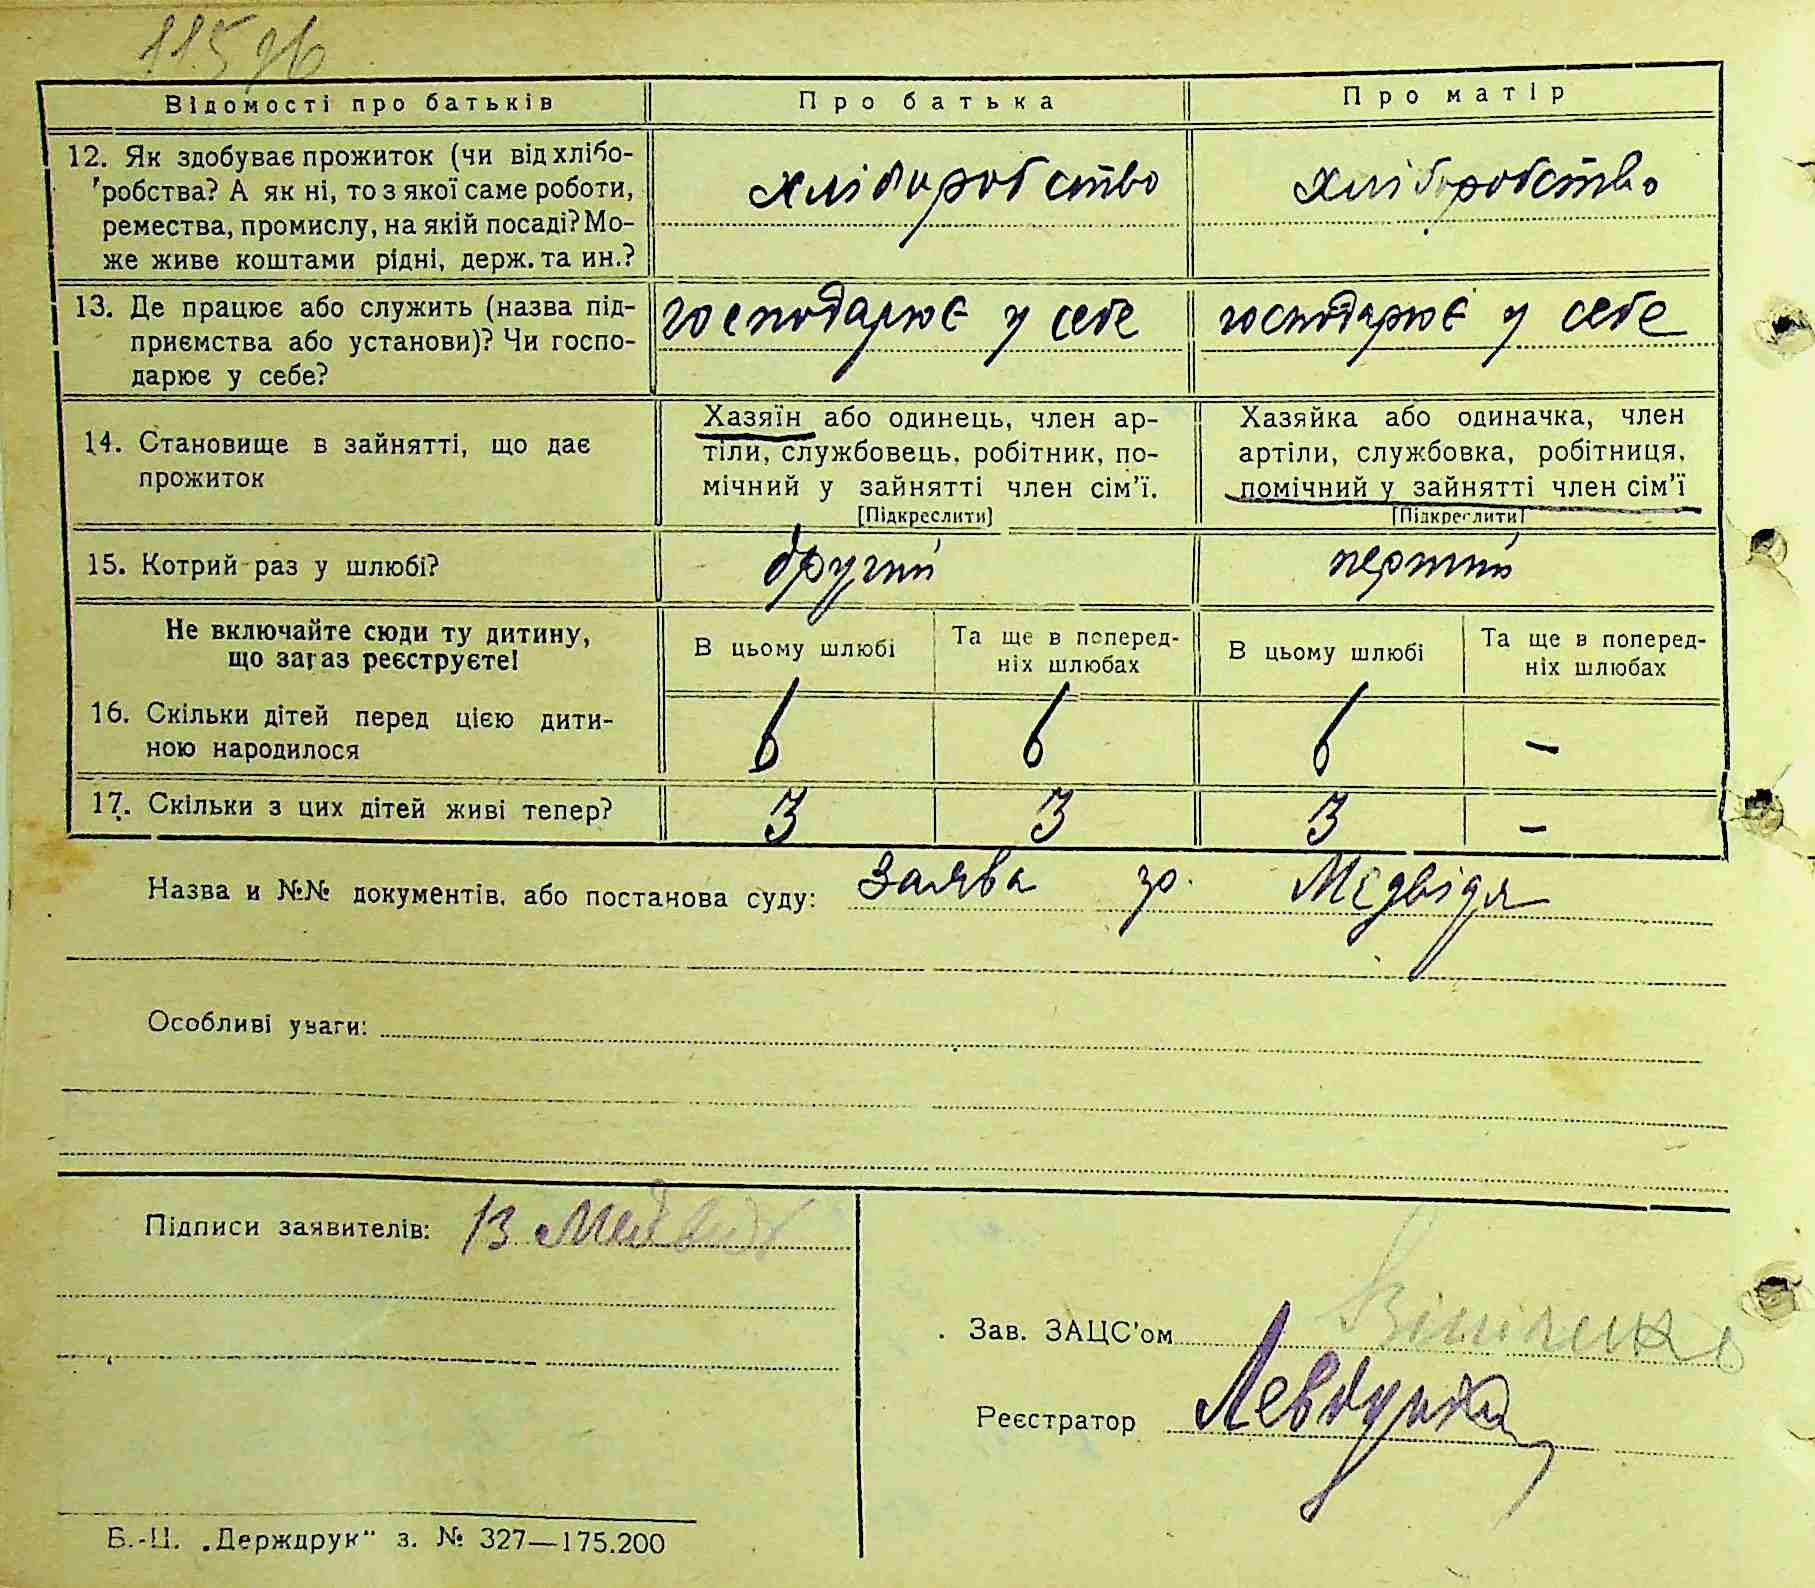 115 зв
Відомості про батьків
Про батька
Про матір
12. Як здобуває прожиток (чи від хлібо-
робства? А як ні, то з якої саме роботи,
ремества, промислу, на якій посаді? Мо-
же живе коштами рідні, держ. та ин.?
хліборобство
хліборобство
13. Де працює або служить (назва під-
приємства або установи)? Чи госпо-
дарює у себе?
господарює у себе
господарює у себе
14. Становище в зайнятті, що дає
прожиток
Хазяїн або одинець, член ар-
тіли, службовець, робітник, по-
мічний у зайнятті член сім'ї.
[Підкреслити]
Хазяйка або одиначка, член
артіли, службовка, робітниця,
помічний у зайнятті член сім'ї
[Підкреслити]
15. Котрий раз у шлюбі?
другий
перший
Не включайте сюди ту дитину,
що зараз реєструєте!
В цьому шлюбі
Та ще в поперед-
ніх шлюбах
В цьому шлюбі
Та ще в поперед-
ніх шлюбах
16. Скільки дітей перед цією дити-
ною народилося
6
6
6
–
17. Скільки з цих дітей живі тепер?
3
3
3
–
Назва и №№ документів, або постанова суду: Заява гр. Медвідя
Особливі уваги:
Підписи заявителів: Медвидь
Зав. ЗАЦС'ом
Реєстратор
Б.-Ц. „Держдрук" з. № 327—175.200